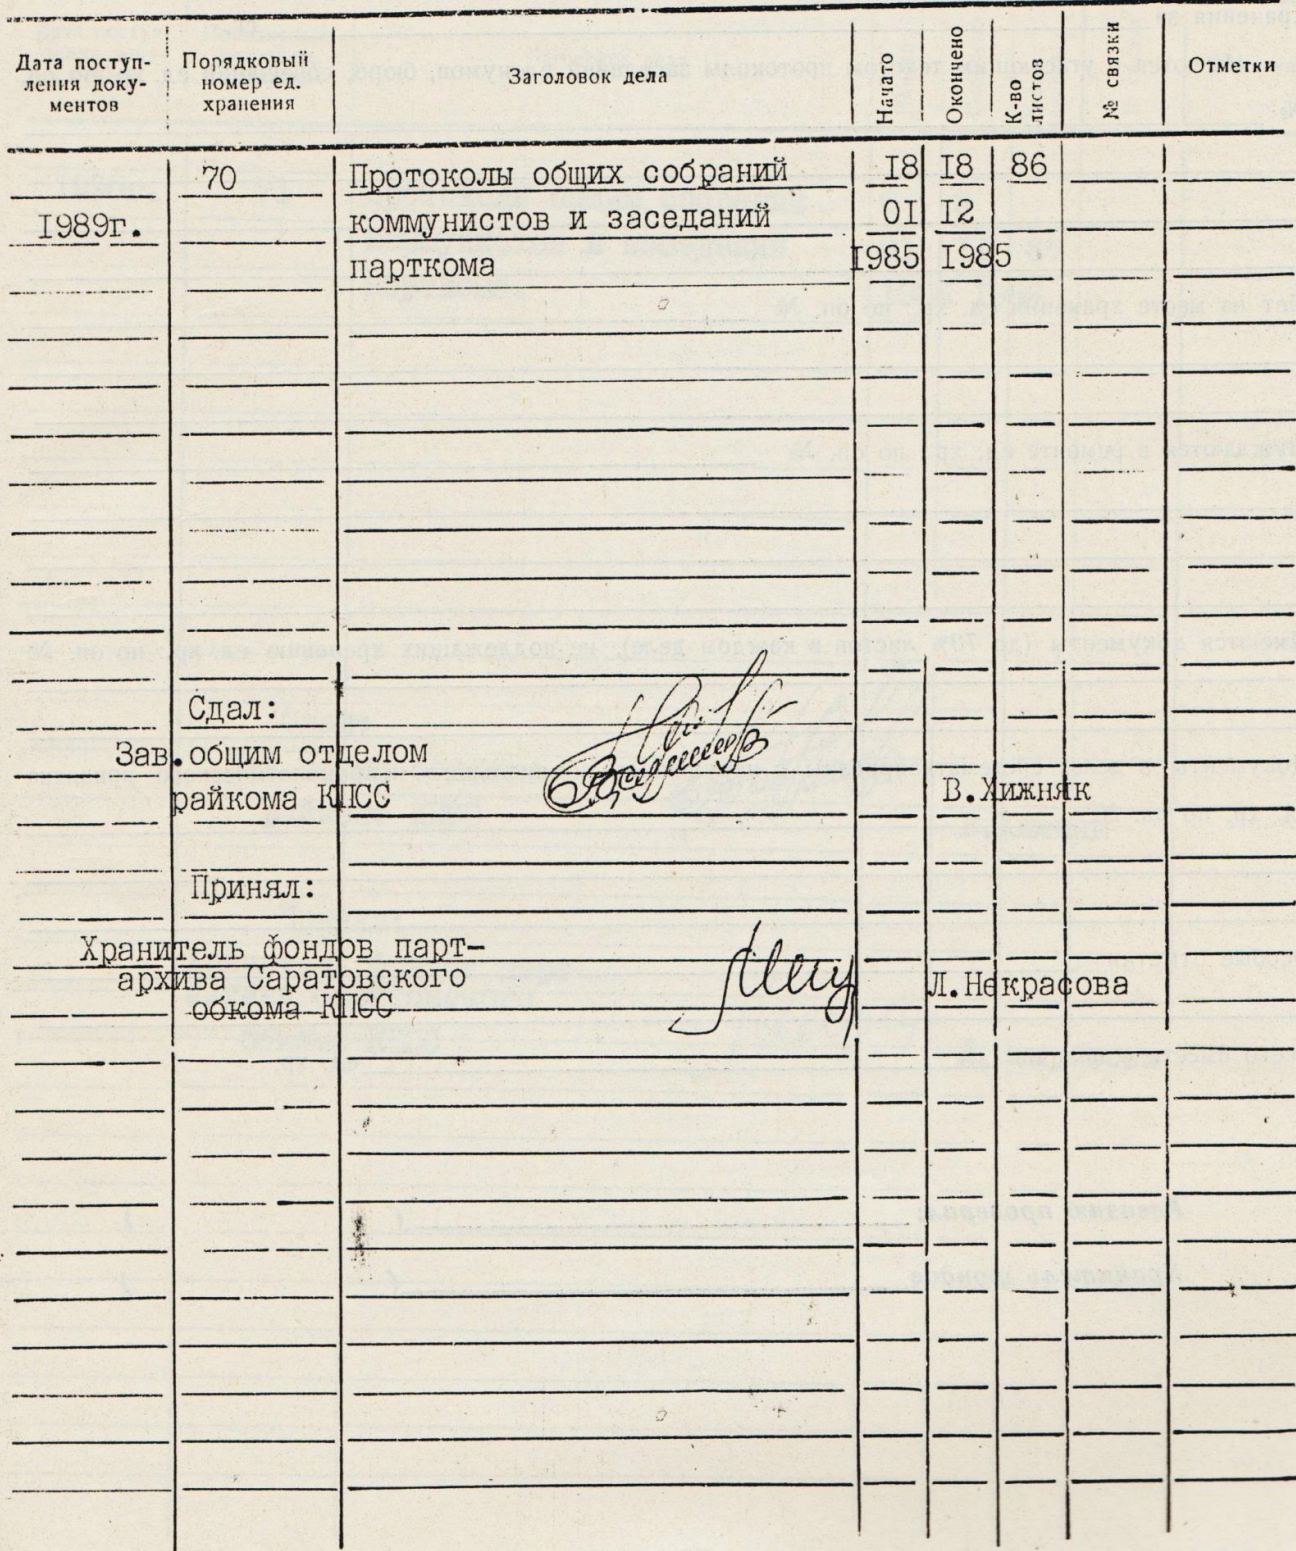 Дата поступ-
ления доку-
ментов
Порядковый
номер ед.
хранения
Заголовок дела
Начато
Окончено
К-во
листов
№ связки
Отметки
70 Протоколы общих собраний I8 I8 86
I989г. коммунистов и заседаний 0I I2
парткома I985 I985
Сдал:
Зав.общим отделом
райкома КПСС В.Хижняк
Принял:
Хранитель фондов парт-
архива Саратовского Л.Некрасова
обкома КПСС